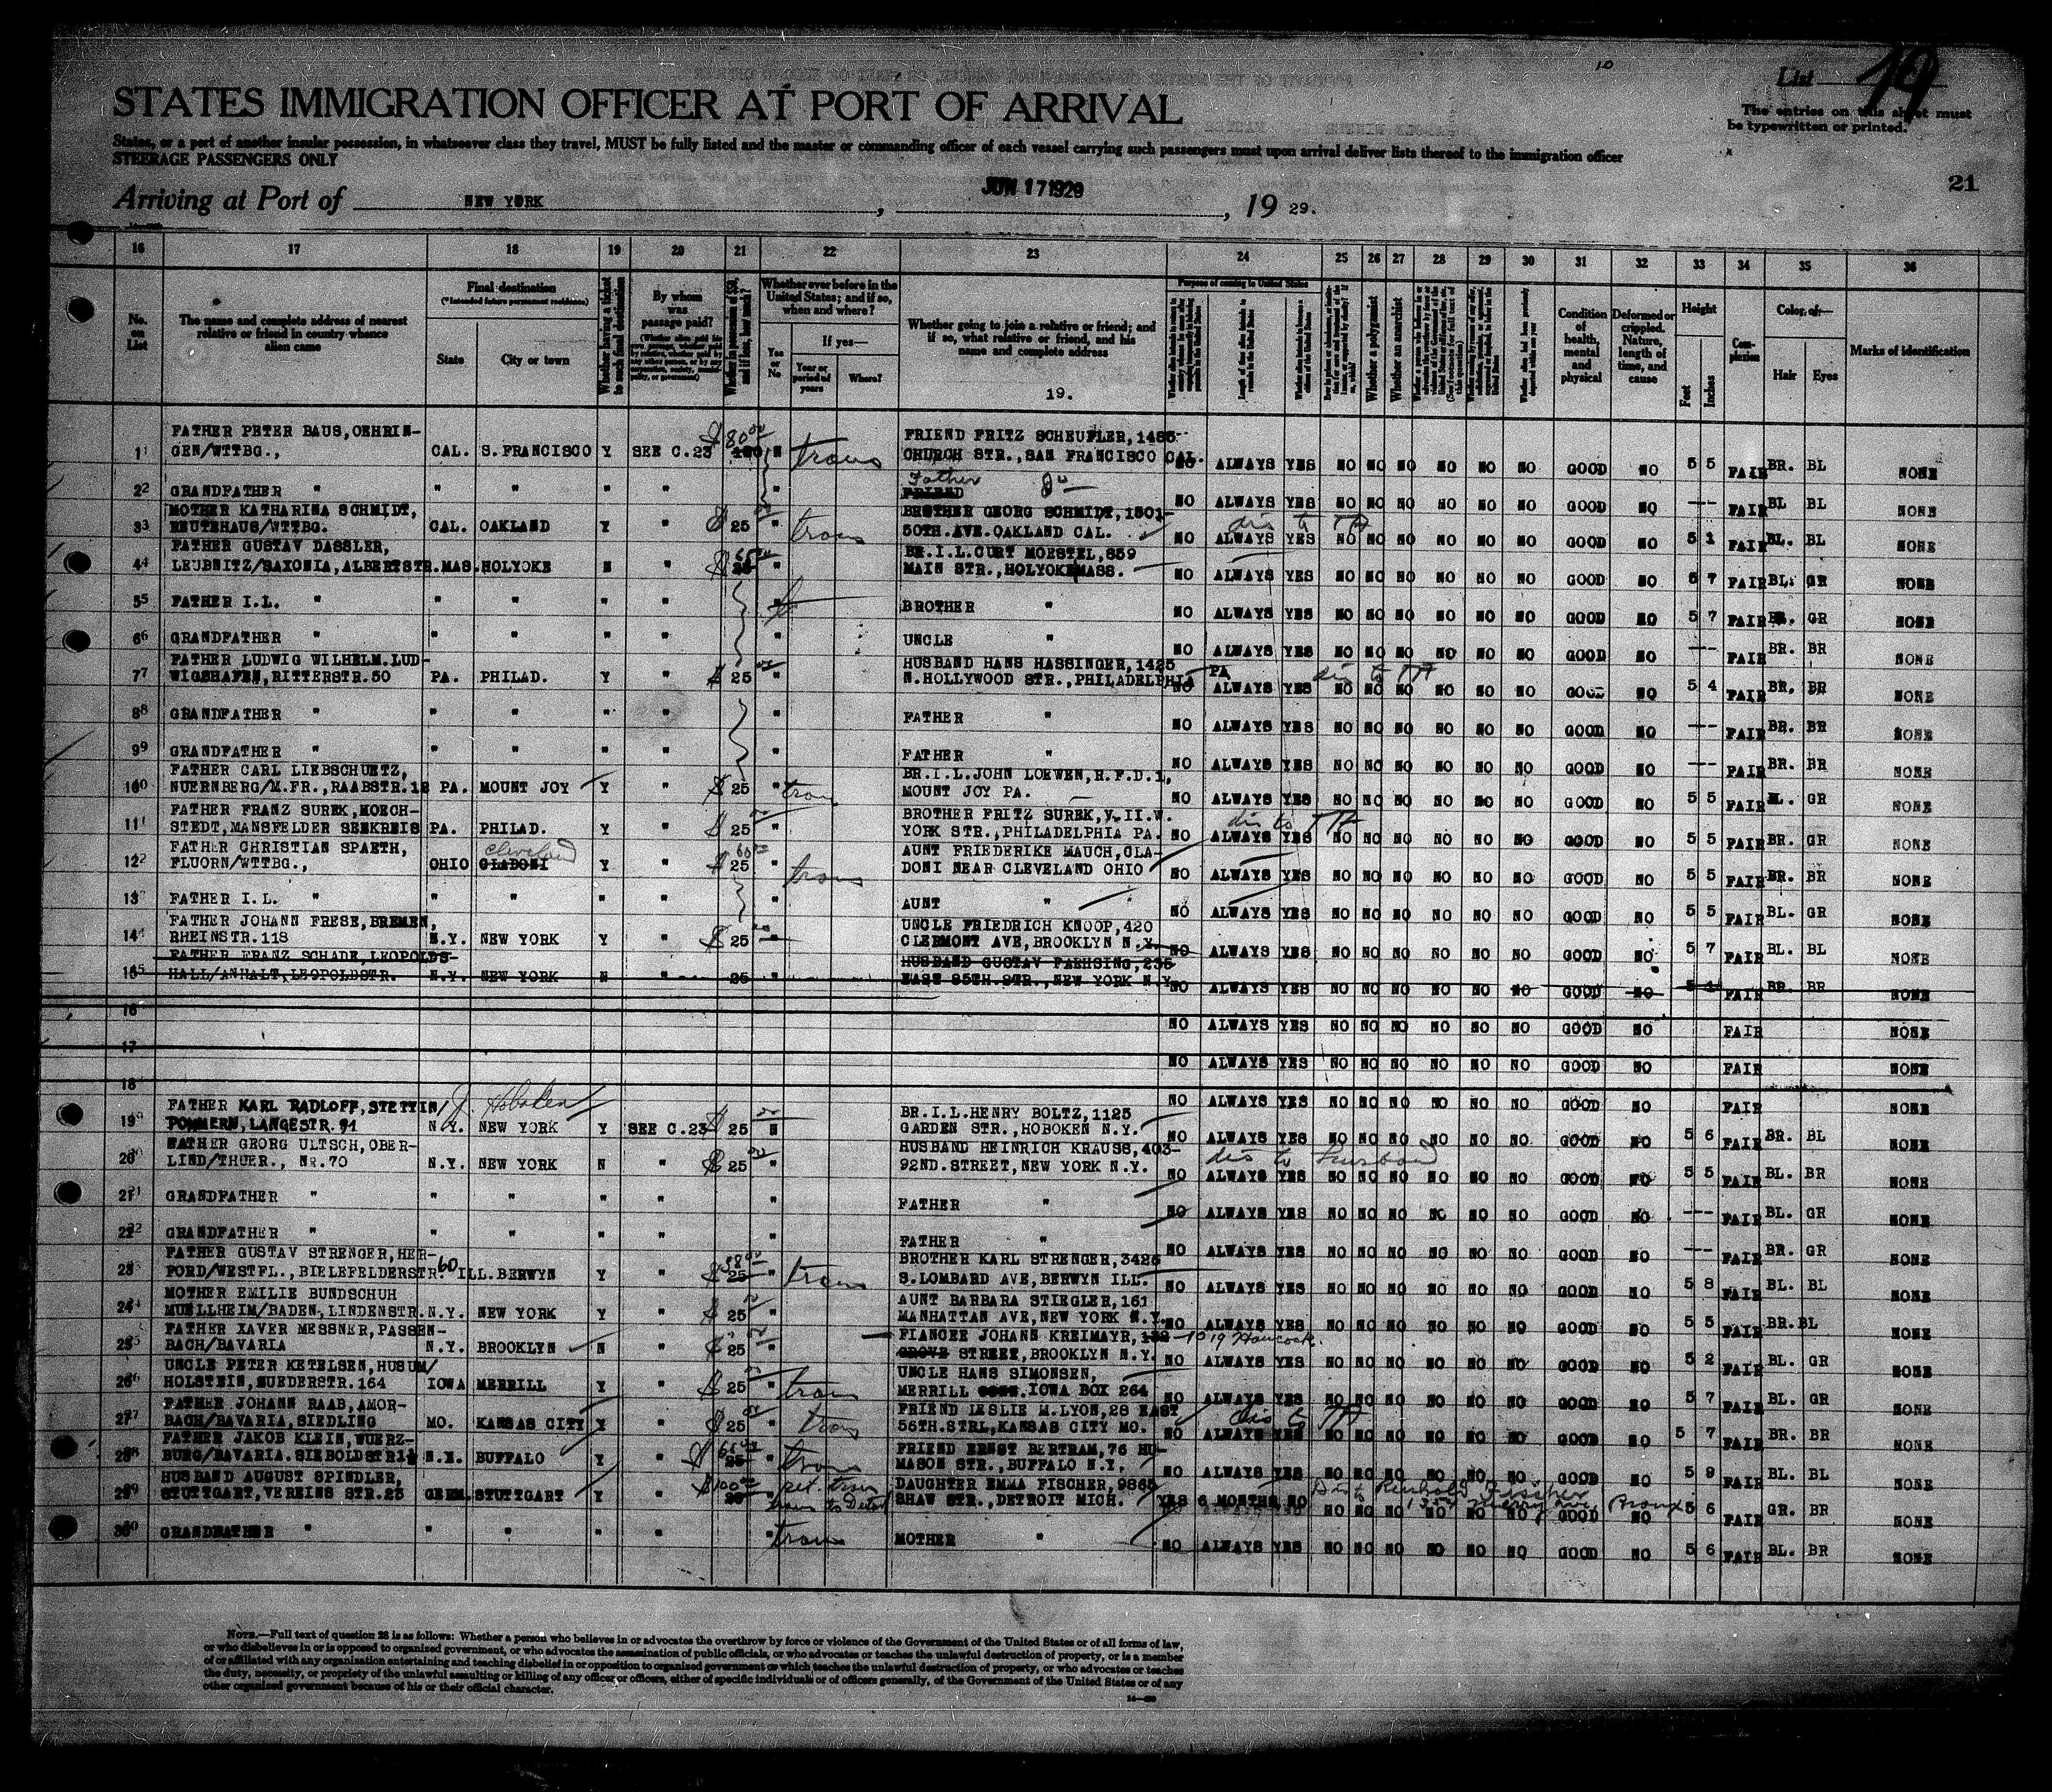 List 19
The entries on this sheet must
be typewritten or printed.
STATES IMMIGRATION OFFICER AT PORT OF ARRIVAL
States, or a part of another insular possession, in whatsoever class they travel, MUST be fully listed and the master or commanding officer of each vessel carrying such passengers must upon arrival deliver lists thereof to the immigration officer
STEERAGE PASSENGERS ONLY
21
Arriving at Port of NEW YORK, JUN 17 1929, 19 29.
16 17 18 19 20 21 22 23 24 25 26 27 28 29 30 31 32 33 34 35 36
No. on List
The name and complete address of nearest relative or friend in country whence alien came
Final destination
(*Intended future permanent residence)
State City or town
Whether having a ticket to such final destination
By whom was passage paid?
Whether ever before in the United States; and if so, when and where?
Yes or No
If yes—
Year or period of years Where?
Whether going to join a relative or friend; and if so, what relative or friend, and his name and complete address
19.
Purpose of coming to United States
Whether a polygamist
Whether an anarchist
Condition of health, mental and physical
Deformed or crippled. Nature, length of time, and cause
Height
Feet Inches
Complexion
Color of—
Hair Eyes
Marks of identification
FATHER PETER BAUS, OEHRIN- $80 FRIEND FRITZ SCHEUFLER, 1485
1 GEN/WTTBG., CAL. S. FRANCISCO Y SEE C.23 N trans CHURCH STR., SAN FRANCISCO CAL. NO ALWAYS YES NO NO NO NO NO NO GOOD NO 5 5 FAIR BR. BL NONE
2 GRANDFATHER " " " " " " Father FRIEND do NO ALWAYS YES NO NO NO NO NO NO GOOD NO --- FAIR BL BL NONE
MOTHER KATHARINA SCHMIDT, BROTHER GEORG SCHMIDT, 1501-
3 REUTEHAUS/WTTBG. CAL. OAKLAND Y " $25 " trans 50TH. AVE. OAKLAND CAL. NO ALWAYS YES NO NO NO NO NO NO GOOD NO 5 1 FAIR BL. BL NONE
FATHER GUSTAV DASSLER, BR. I.L. CURT MOESTEL, 859
4 LEUBNITZ/SAXONIA, ALBERTSTR. MAS. HOLYOKE N " $ " MAIN STR., HOLYOKE MASS. NO ALWAYS YES NO NO NO NO NO NO GOOD NO 5 7 FAIR BL. GR NONE
5 FATHER I.L. " " " " " " BROTHER " NO ALWAYS YES NO NO NO NO NO NO GOOD NO 5 7 FAIR GR NONE
6 GRANDFATHER " " " " " " UNCLE " NO ALWAYS YES NO NO NO NO NO NO GOOD NO --- FAIR BR. BR NONE
FATHER LUDWIG WILHELM. LUD- HUSBAND HANS HASSINGER, 1425
7 WIGSHAFEN, RITTERSTR. 50 PA. PHILAD. Y " $25 " N. HOLLYWOOD STR., PHILADELPHIA PA NO ALWAYS YES NO NO NO NO NO NO GOOD NO 5 4 FAIR BR. BR NONE
8 GRANDFATHER " " " " " " FATHER " NO ALWAYS YES NO NO NO NO NO NO GOOD NO --- FAIR BR. BR NONE
9 GRANDFATHER " " " " " " FATHER " NO ALWAYS YES NO NO NO NO NO NO GOOD NO --- FAIR BR. BR NONE
FATHER CARL LIEBSCHUETZ, BR. I.L. JOHN LOEWEN, R.F.D. 1,
10 NUERNBERG/M.FR., RAABSTR. 12 PA. MOUNT JOY Y " $25 " tran MOUNT JOY PA. NO ALWAYS YES NO NO NO NO NO NO GOOD NO 5 5 FAIR GR NONE
FATHER FRANZ SUREK, HORCH- BROTHER FRITZ SUREK, V. II. W.
11 STEDT, MANSFELDER SEEKREIS PA. PHILAD. Y " $25 " YORK STR., PHILADELPHIA PA. NO ALWAYS YES NO NO NO NO NO NO GOOD NO 5 5 FAIR BR. GR NONE
FATHER CHRISTIAN SPAETH, Cleveland 60 AUNT FRIEDERIKE MAUCH, GLA-
12 FLUORN/WTTBG., OHIO GLADONI Y " $25 " trans DONI NEAR CLEVELAND OHIO NO ALWAYS YES NO NO NO NO NO NO GOOD NO 5 5 FAIR BR. BR NONE
13 FATHER I.L. " " " " " " AUNT " NO ALWAYS YES NO NO NO NO NO NO GOOD NO 5 5 FAIR BL. GR NONE
FATHER JOHANN FRESE, BREMEN, UNCLE FRIEDRICH KNOOP, 420
14 RHEINSTR. 118 N.Y. NEW YORK Y " $25 CLERMONT AVE, BROOKLYN N.Y. NO ALWAYS YES NO NO NO NO NO NO GOOD NO 5 7 FAIR BL. BL NONE
FATHER FRANZ SCHADE, LEOPOLDS- HUSBAND GUSTAV PAEHSING, 235
15 HALL/ANHALT, LEOPOLDSTR. N.Y. NEW YORK N " 25 " EAST 85TH. STR., NEW YORK N.Y. NO ALWAYS YES NO NO NO NO NO NO GOOD NO FAIR BR. BR NONE
16 NO ALWAYS YES NO NO NO NO NO NO GOOD NO FAIR NONE
17 NO ALWAYS YES NO NO NO NO NO NO GOOD NO FAIR NONE
18 NO ALWAYS YES NO NO NO NO NO NO GOOD NO FAIR NONE
FATHER KARL RADLOFF, STETTIN/ J. Hoboken BR. I.L. HENRY BOLTZ, 1125
19 POMMERN, LANGESTR. 91 N.Y. NEW YORK Y SEE C.23 $25 N GARDEN STR., HOBOKEN N.Y. NO ALWAYS YES NO NO NO NO NO NO GOOD NO 5 6 FAIR BR. BL NONE
FATHER GEORG ULTSCH, OBER- HUSBAND HEINRICH KRAUSS, 403-
20 LIND/THUER., NR. 70 N.Y. NEW YORK N " $25 " 92ND. STREET, NEW YORK N.Y. dis to husband NO ALWAYS YES NO NO NO NO NO NO GOOD NO 5 5 FAIR BL. BR NONE
21 GRANDFATHER " " " " " " FATHER " NO ALWAYS YES NO NO NO NO NO NO GOOD NO --- FAIR BL. GR NONE
22 GRANDFATHER " " " " " " FATHER " NO ALWAYS YES NO NO NO NO NO NO GOOD NO --- FAIR BR. GR NONE
FATHER GUSTAV STRENGER, HER- BROTHER KARL STRENGER, 3425
23 FORD/WESTFL., BIELEFELDERSTR. 60 ILL. BERWYN Y " $25 trans S. LOMBARD AVE, BERWYN ILL. NO ALWAYS YES NO NO NO NO NO NO GOOD NO 5 8 FAIR BL. BL NONE
MOTHER EMILIE BUNDSCHUH AUNT BARBARA STIEGLER, 161
24 MUELLHEIM/BADEN, LINDENSTR. N.Y. NEW YORK Y " $25 " MANHATTAN AVE, NEW YORK N.Y. NO ALWAYS YES NO NO NO NO NO NO GOOD NO 5 5 FAIR BR. BL NONE
FATHER XAVER MESSNER, PASSEN- FIANCEE JOHANN KREIMAYR, 1019 Hancock.
25 BACH/BAVARIA N.Y. BROOKLYN N " $25 " GROVE STREET, BROOKLYN N.Y. NO ALWAYS YES NO NO NO NO NO NO GOOD NO 5 2 FAIR BL. GR NONE
UNCLE PETER KETELSEN, HUSUM/ UNCLE HANS SIMONSEN,
26 HOLSTEIN, SUEDERSTR. 164 IOWA MERRILL Y " $25 " trans MERRILL IOWA BOX 264 NO ALWAYS YES NO NO NO NO NO NO GOOD NO 5 7 FAIR BL. GR NONE
FATHER JOHANN RAAB, AMOR- FRIEND LESLIE M. LYON, 28 EAST
27 BACH/BAVARIA, SIEDLING MO. KANSAS CITY Y " $25 " trans 56TH. STRL, KANSAS CITY MO. NO ALWAYS YES NO NO NO NO NO NO GOOD NO 5 7 FAIR BR. BR NONE
FATHER JAKOB KLEIN, WUERZ- FRIEND ERNST BERTRAM, 76 HU-
28 BURG/BAVARIA. SIEBOLDSTR N.Y. BUFFALO Y " $ " trans MASON STR., BUFFALO N.Y. NO ALWAYS YES NO NO NO NO NO NO GOOD NO 5 9 FAIR BL. BL NONE
HUSBAND AUGUST SPINDLER, $100 DAUGHTER EMMA FISCHER, 9865 Dis to Reinhold Fischer
29 STUTTGART, VEREINS STR. 23 GERM. STUTTGART Y " trans to Detroit SHAW STR., DETROIT MICH. YES 6 MONTHS NO NO NO NO NO NO NO GOOD NO Bronx 5 6 FAIR GR. BR NONE
30 GRANDFATHER " " " " " " trans MOTHER " NO ALWAYS YES NO NO NO NO NO NO GOOD NO 5 6 FAIR BL. BR NONE
NOTE.—Full text of question 28 is as follows: Whether a person who believes in or advocates the overthrow by force or violence of the Government of the United States or of all forms of law,
or who disbelieves in or is opposed to organized government, or who advocates the assassination of public officials, or who advocates or teaches the unlawful destruction of property, or is a member
of or affiliated with any organization entertaining and teaching disbelief in or opposition to organized government or which teaches the unlawful destruction of property, or who advocates or teaches
the duty, necessity, or propriety of the unlawful assaulting or killing of any officer or officers, either of specific individuals or of officers generally, of the Government of the United States or of any
other organized government because of his or their official character.